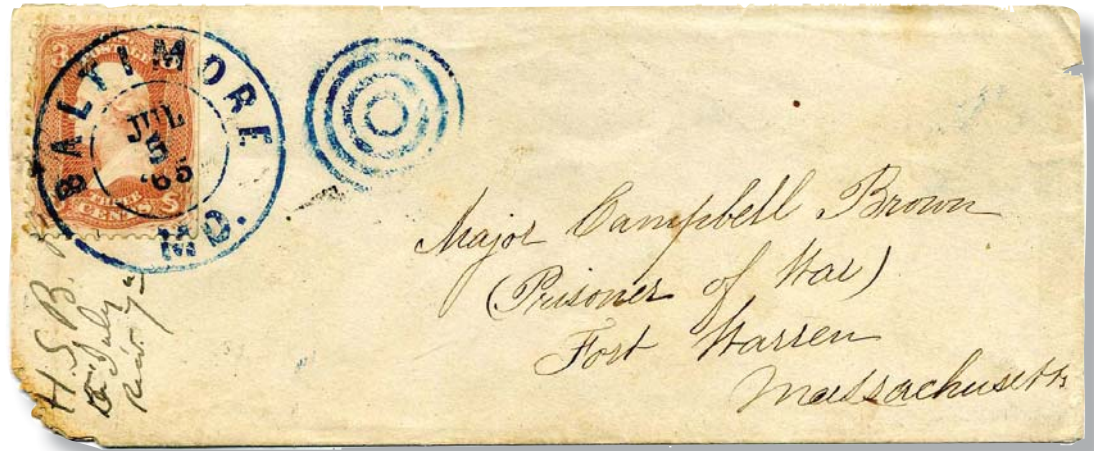 BALTIMORE
MD.
JUL
5
'65
3
THREE
CENTS
Major Campbell Brown
(Prisoner of War)
Fort Warren
Massachusetts
H. S. B.
July
7